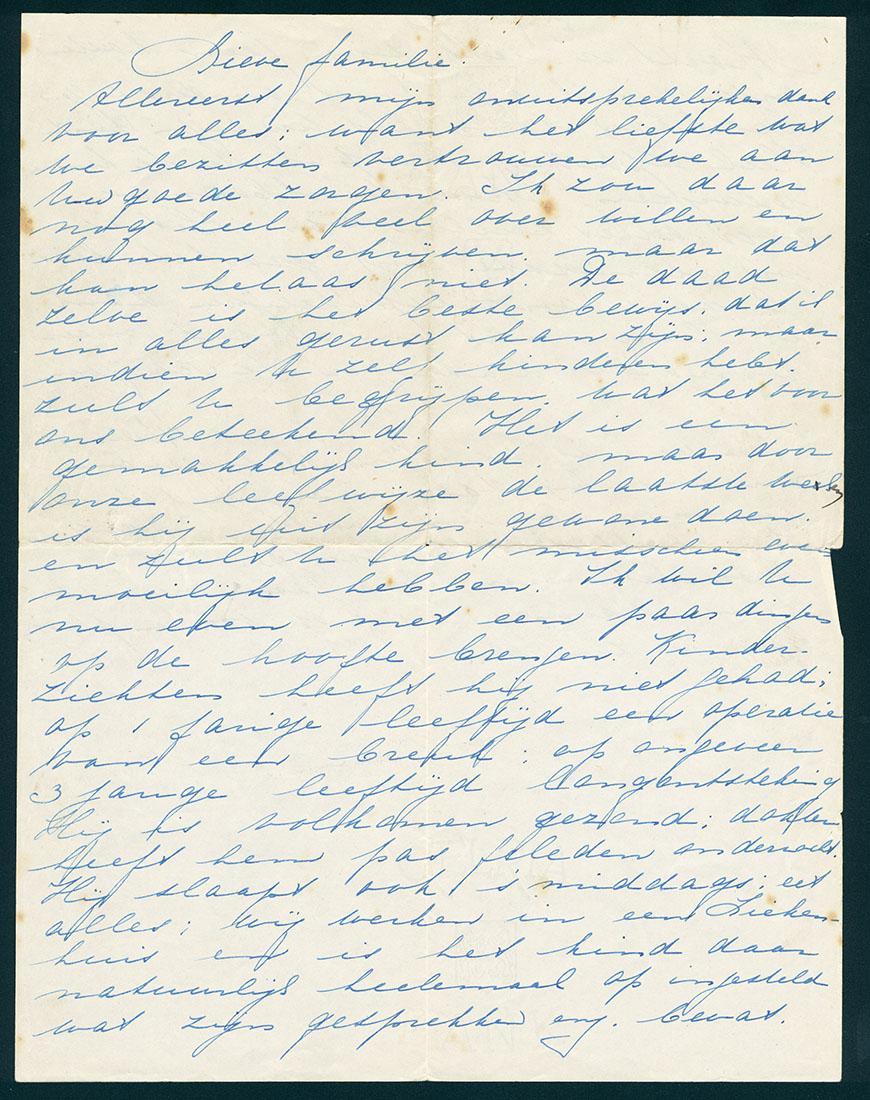 Lieve familie!
Allereerst mijn onuitsprekelijken dank
voor alles; want het liefste wat
we bezitten vertrouwen we aan
Uw goede zorgen. Ik zou daar
nog heel veel over willen en
kunnen schrijven, maar dat
kan helaas niet. De daad
zelve is het beste bewijs, dat ik
in alles gerust kan zijn; maar
indien U zelf kinderen hebt,
zult U begrijpen, wat het voor
ons beteekend. Het is een
gemakkelijk kind, maar door
onze leefwijze de laatste weken
is hij uit zijn gewone doen.
en zult U het misschien even
moeilijk hebben. Ik wil U
nu even met een paar dingen
op de hoogte brengen. Kinder-
ziekten heeft hij niet gehad;
op 1 jarige leeftijd een operatie
van een breuk; op ongeveer
3 jarige leeftijd longontsteking
Hij is volkomen gezond; dokter
heeft hem pas geleden onderzocht.
Hij slaapt ook 's middags; eet
alles; wij werken in een Zieken-
huis en is het kind daar
natuurlijk heelemaal op ingesteld
wat zijn gesprekken enz. bevat.